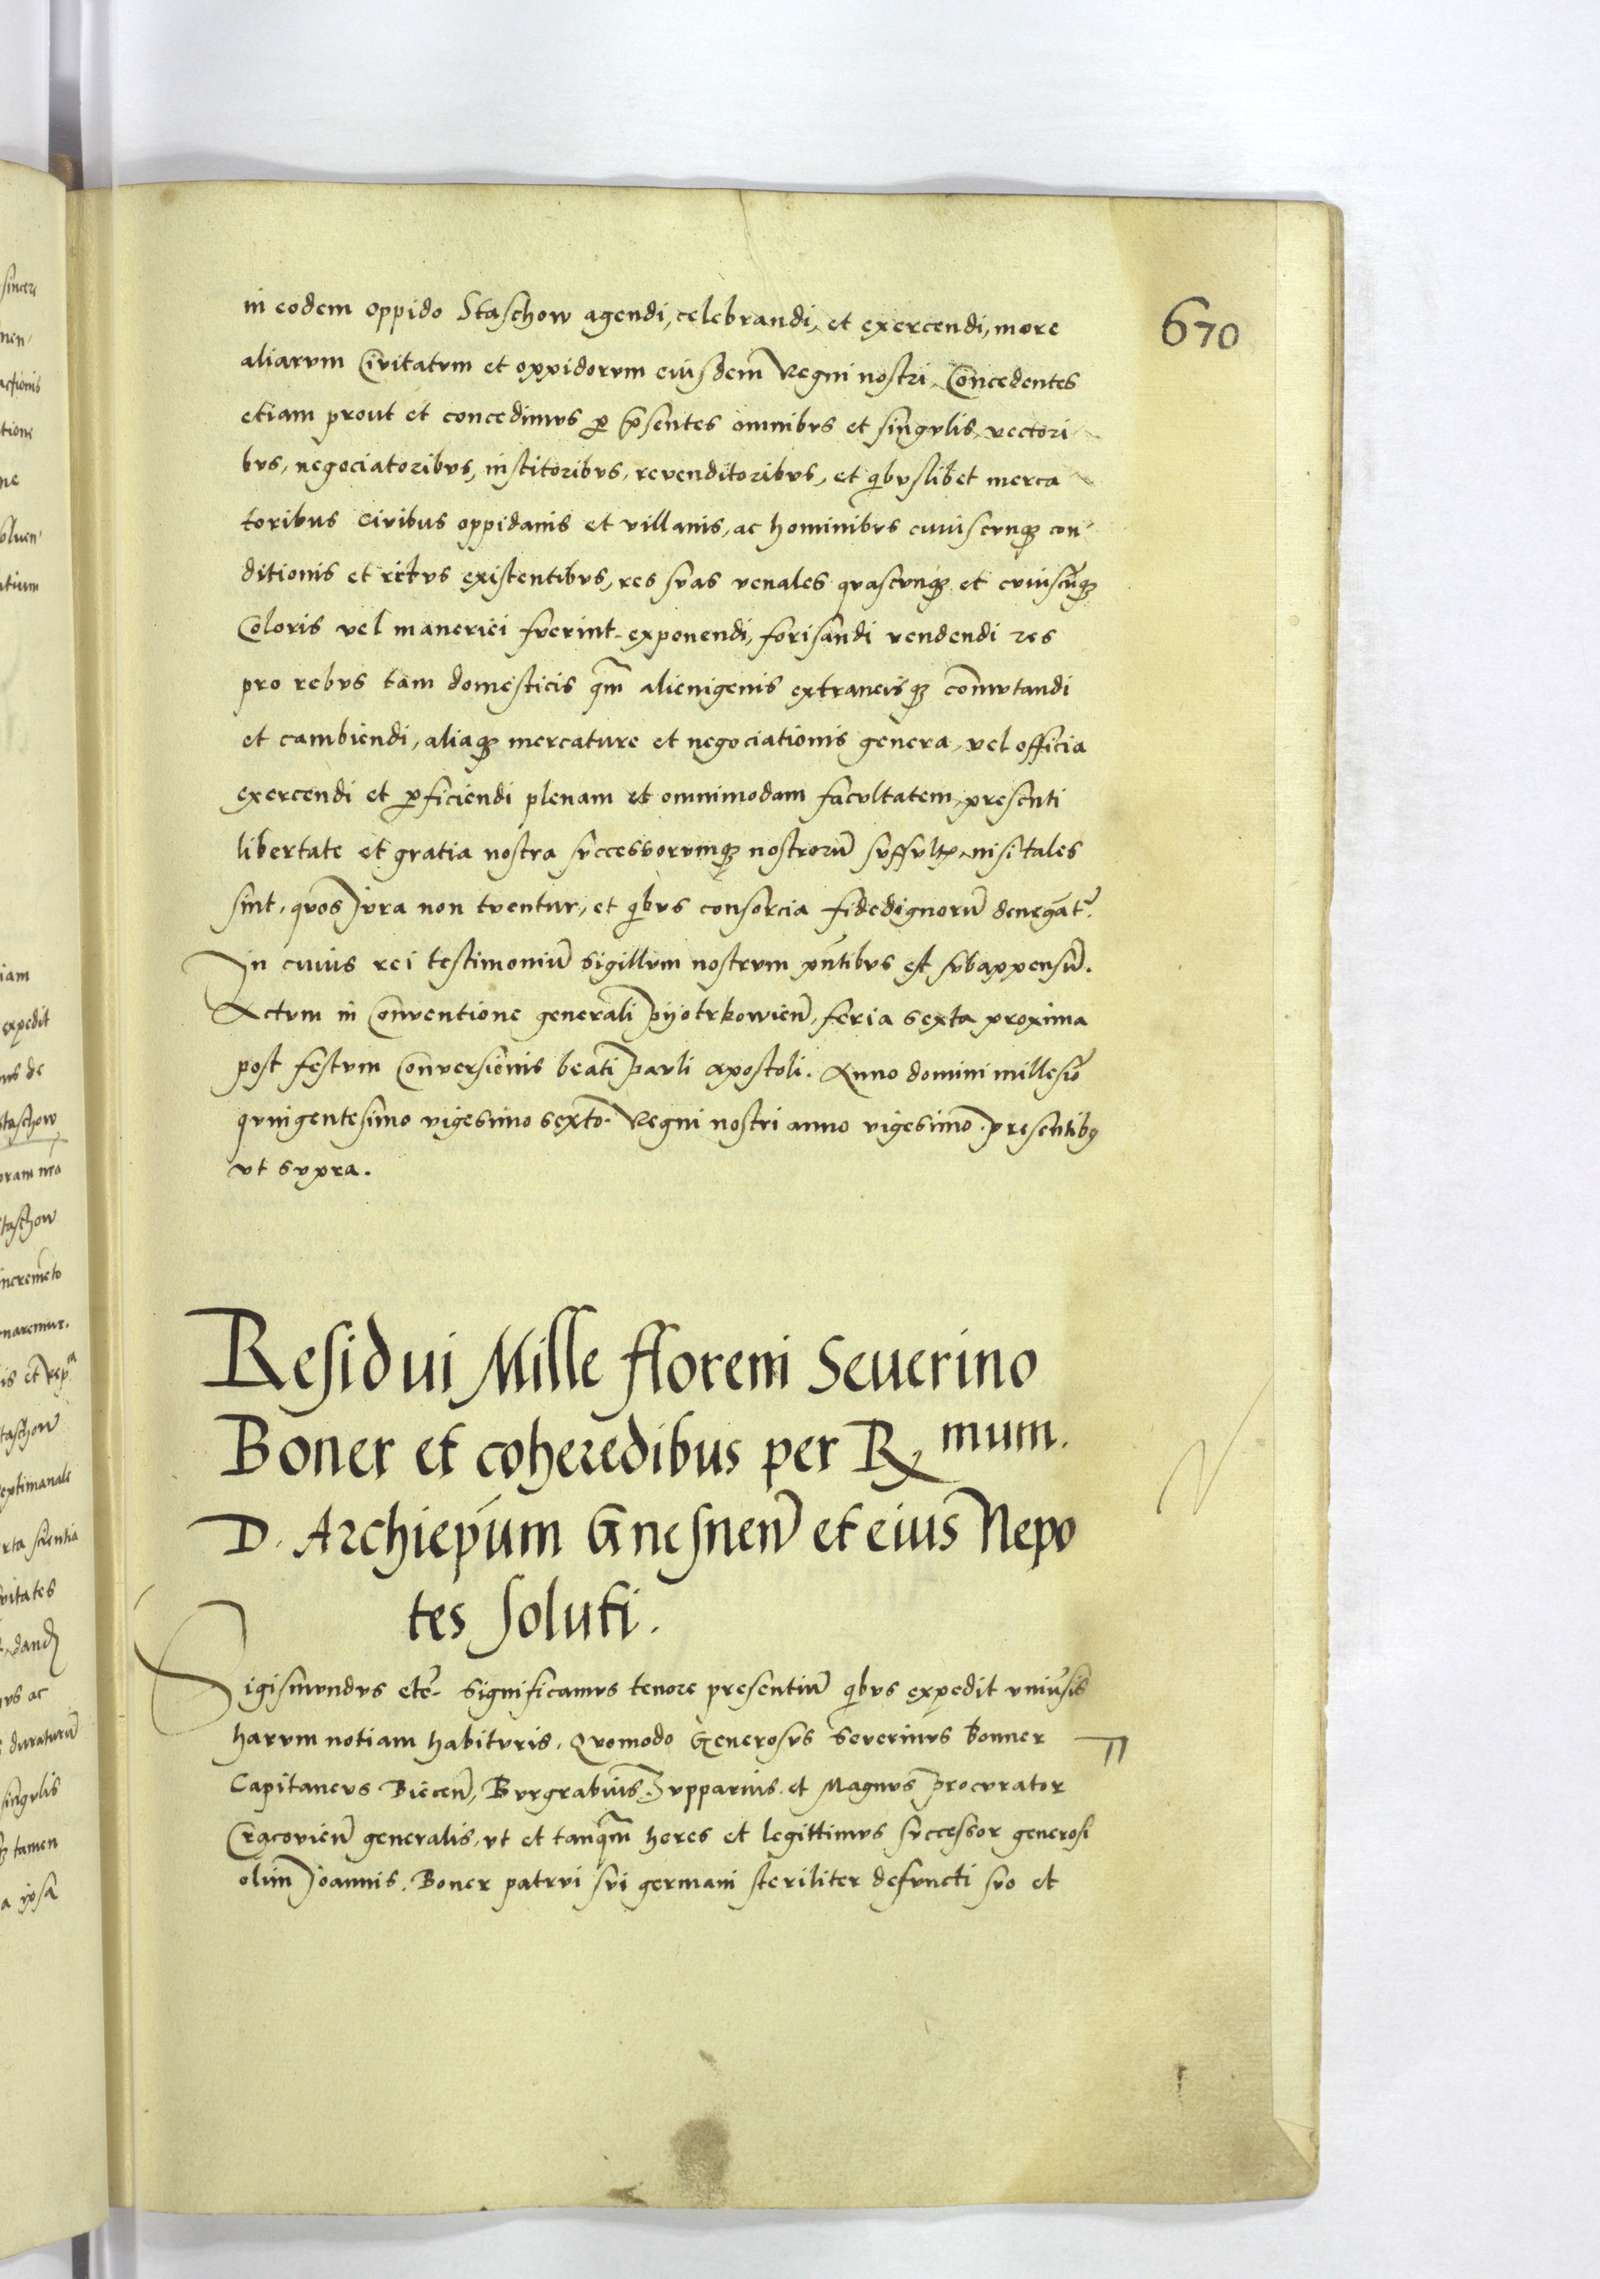 670
in eodem oppido Staschow agendi, celebrandi, et exercendi, more
aliarvm Civitatvm et oppidorvm eiusdem̄ Regni nostri, Concedentes
etiam prout et concedimvs ꝑ p̄sentes omnibvs et singvlis, vectori
bvs, negociatoribvs, institoribvs, revenditoribvs, et qi̇bvslibet merca
toribus civibus oppidanis et villanis, ac hominibvs cuiuscvnqꝫ con
ditionis et ritvs existentibvs, res svas venales qvascvnqꝫ et cviuscūqꝫ
Coloris vel maneriei fverint exponendi, forisandi vendendi res
pro rebvs tam domesticis qm̄ alienigenis extraneisqꝫ com̄vtandi
et cambiendi, aliaqꝫ mercature et negociationis genera, vel officia
exercendi et ꝑficiendi plenam et omnimodam facvltatem, presenti
libertate et gratia nostra svccessorvmqꝫ nostrorū svffvltꝭ, nisi tales
sint, qvos Jvra non tventur, et qi̇bvs consorcia fidedignorū denegāt̄.
In cuius rei testimoniū sigillvm nostrvm pn̄tibvs est svbappensū.
Actvm in Conventione generali Pyotrkovien̄, feria sexta proxima
post festvm Conversionis beati Pavli apostoli. Anno domini millesīo
qvingentesimo vigesimo sexto. Regni nostri anno vigesimo. presentibꝯ
vt svpra.
Residui Mille floreni Seuerino
Boner et coheredibus per R mum.
D. Archiep̄um Gnesnen̄ et eius Nepo
tes soluti.
Sigismvndvs etc̄. Significamvs tenore presentiū qi̇bvs expedit vniūsis
harvm notiam habitvris. Qvomodo Generosvs Severinvs Bonner
Capitanevs Biecen̄, Bvrgrabius, Zvpparius, et Magnvs procvrator
Cracovien̄ generalis, vt et tanqm̄ heres et legittimvs svccessor generosi
olim Joannis Boner patrvi svi germani steriliter defvncti svo et